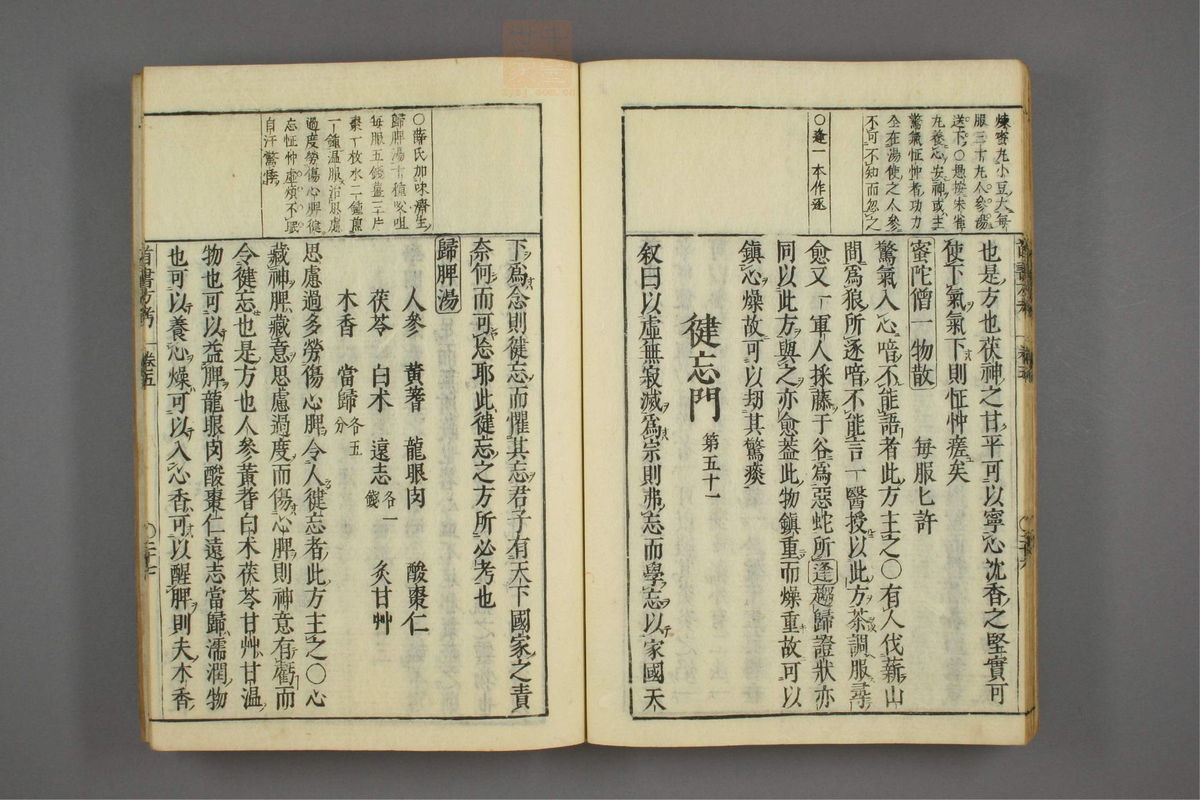 煉蜜丸小豆大每
服三十丸人參湯
送下○愚按朱雀
丸養心安神或主
驚氣怔忡者功力
全在湯使之人參
不可不知而忽之
○逢一本作逐
也是方也茯神之甘平可以寧心沈香之堅實可
使下氣氣下則怔忡瘥矣
蜜陀僧一物散 每服匕許
驚氣入心瘖不能語者此方主之○有人伐薪山
間爲狼所逐瘖不能言一醫授以此方茶調服尋
愈又一軍人採藤于谷爲惡蛇所逢趨歸證狀亦
同以此方與之亦愈蓋此物鎮重而燥重故可以
鎮心燥故可以劫其驚痰
健忘門 第五十一
叙曰以虛無寂滅爲宗則弗忘而學忘以家國天
○薛氏加味濟生
歸脾湯十種㕮咀
每服五錢薑三片
棗一枚水二鍾煎
一鍾溫服治思慮
過度勞傷心脾健
忘怔忡虛煩不眠
自汗驚悸
下爲念則健忘而懼其忘君子有天下國家之責
奈何而可忘耶此健忘之方所必考也
歸脾湯
人參 黃蓍 龍眼肉 酸棗仁
茯苓 白朮 遠志各一錢 炙甘艸
木香 當歸各五分
思慮過多勞傷心脾令人健忘者此方主之○心
藏神脾藏意思慮過度而傷心脾則神意有虧而
令健忘也是方也人參黃蓍白朮茯苓甘艸甘温
物也可以益脾龍眼肉酸棗仁遠志當歸濡潤物
也可以養心燥可以入心香可以醒脾則夫木香
首書方考 卷五